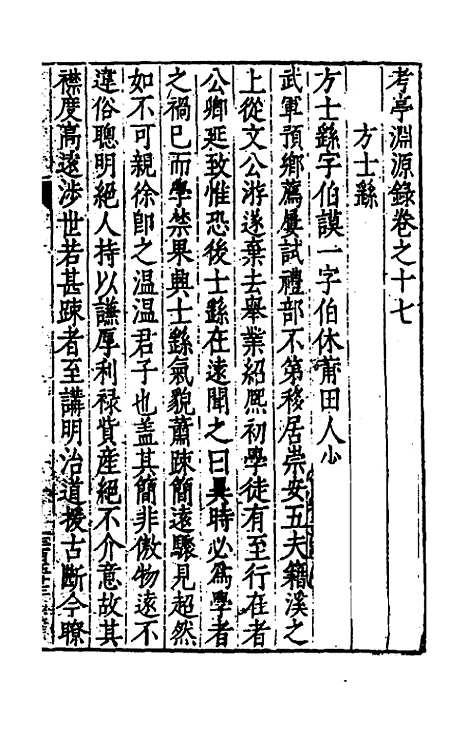 考亭淵源錄卷之十七
方士繇
方士繇字伯謨一字伯休莆田人少
武軍預鄉薦屢試禮部不第移居崇安五夫籍溪之
上從文公游遂棄去舉業紹熙初學徒有至行在者
公卿延致惟恐後士繇在遠聞之曰異時必爲學者
之禍巳而學禁果興士繇氣貌蕭踈簡遠驟見超然
如不可親徐卽之温温君子也盖其簡非傲物遠不
違俗聰明絕人持以謙厚利禄貲産絕不介意故其
襟度高遠涉世若甚踈者至講明治道援古斷今瞭